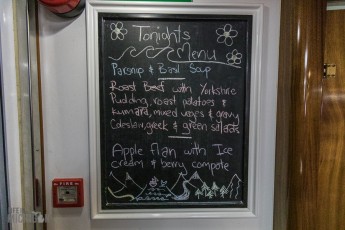 Tonights
Menu
Parsnip & Basil Soup
Roast Beef with Yorkshire
Pudding, roast potatoes &
Kumara, mixed veges & gravy
Coleslaw, greek & green salads
Apple flan with Ice
cream & berry compote
FIRE